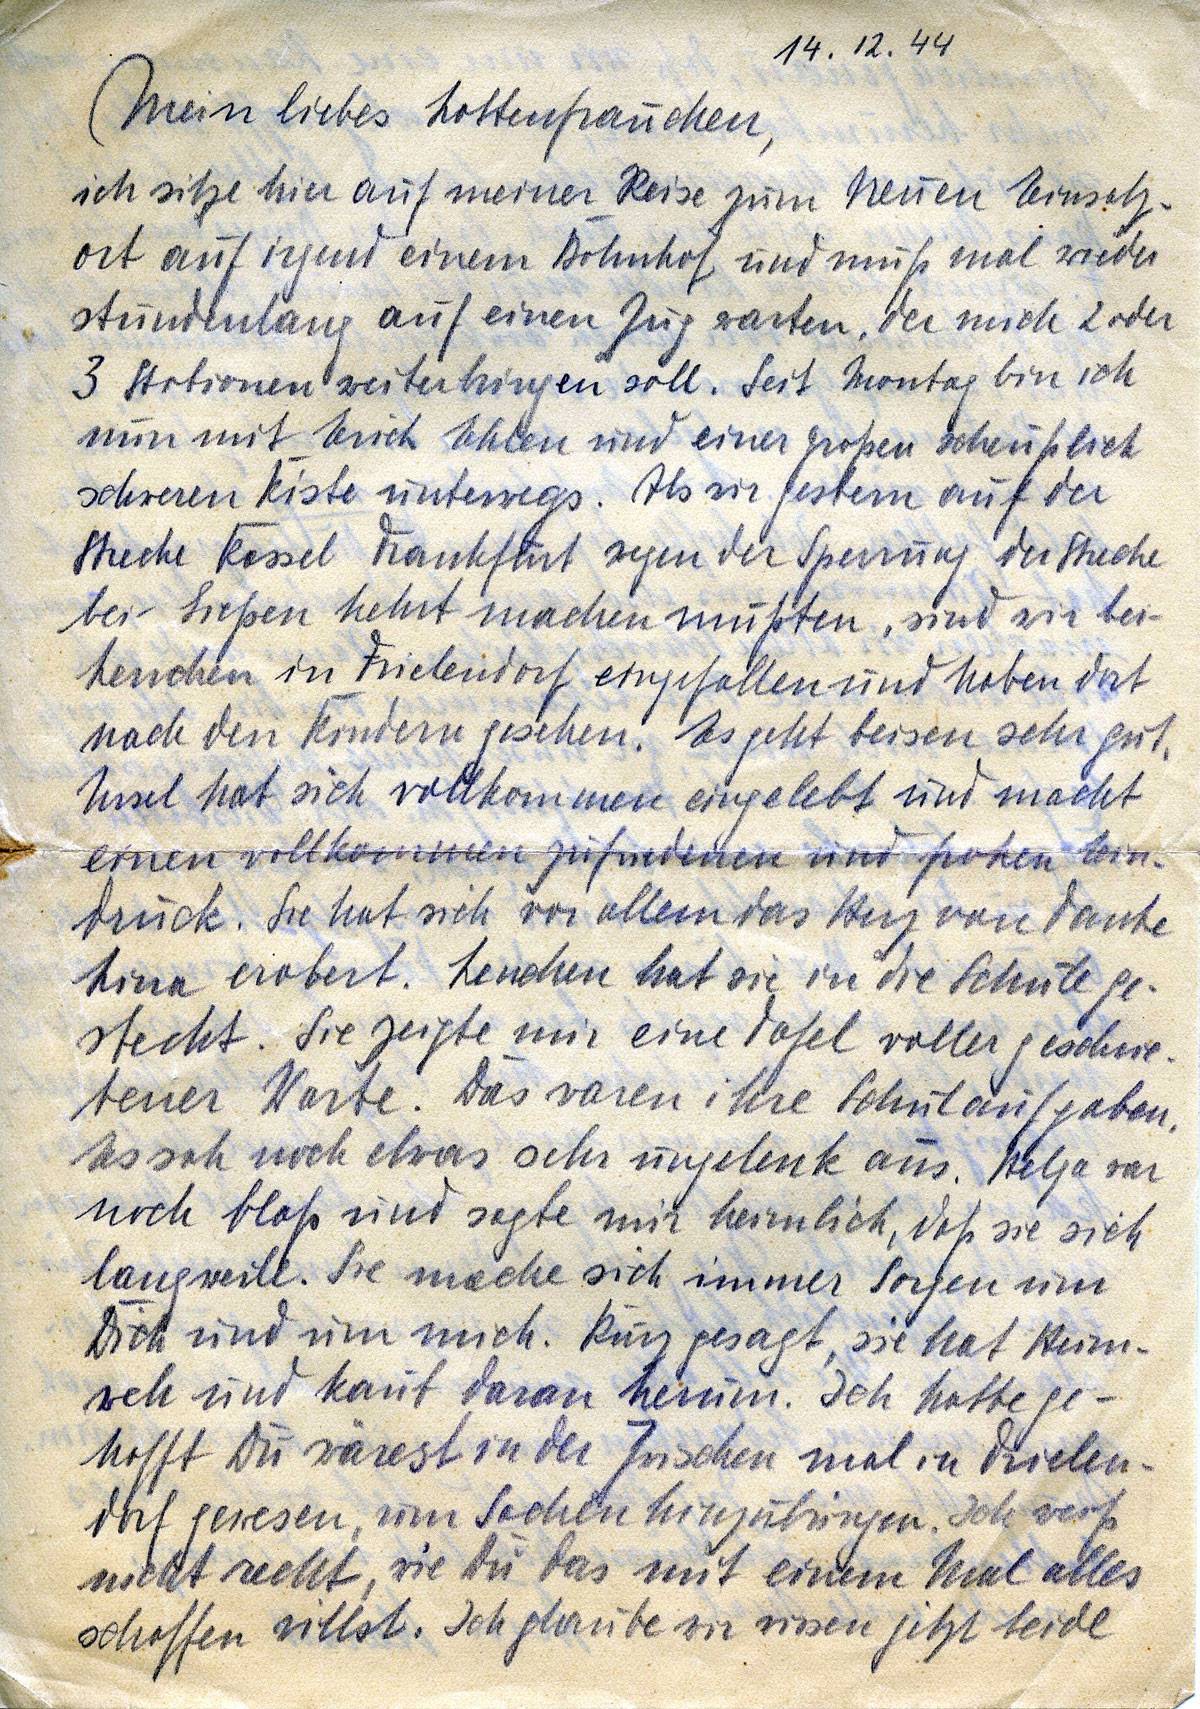 14. 12. 44
Mein liebes Lottenfrauchen,
ich sitze hier auf meiner Reise zum Neuen Einsatz-
ort auf irgend einem Bahnhof und muß mal wieder
stundenlang auf einen Zug warten, der mich 2 oder
3 Stationen weiterbringen soll. Seit Montag bin ich
nun mit Erich Ehlen und einer großen scheußlich
schweren Kiste unterwegs. Als wir gestern auf der
Strecke Kassel Frankfurt wegen der Sperrung der Strecke
bei Gießen kehrt machen mußten, sind wir bei
Lenchen in Frielendorf eingefallen und haben dort
nach den Kindern gesehen. Es geht beisen sehr gut.
Ursel hat sich vollkommen eingelebt und macht
einen vollkommen zufriedenen und frohen Ein-
druck. Sie hat sich vor allem das Herz von Tante
Lina erobert. Lenchen hat sie in die Schule ge-
steckt. Sie zeigte mir eine Tafel voller geschrie-
bener Worte. Das waren ihre Schulaufgaben.
Es sah noch etwas sehr ungelenk aus. Helga war
noch blaß und sagte mir heimlich, daß sie sich
langweile. Sie mache sich immer Sorgen um
Dich und um mich. Kurz gesagt, sie hat Heim-
weh und kaut daran herum. Ich hatte ge-
hofft Du wärest in der Zwischen mal in Frielen-
dorf gewesen, um Sachen hinzubringen. Ich weiß
nicht recht, wie Du das mit einem Mal alles
schaffen willst. Ich glaube wir wissen jetzt beide